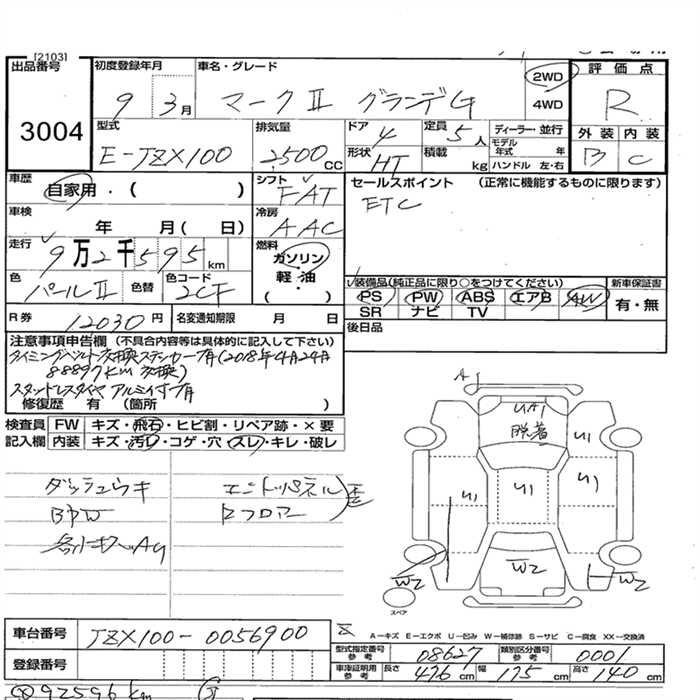 [2103]
出品番号
3004
初度登録年月
9 3月
車名・グレード
マークⅡ グランデG
2WD
4WD
評価点
R
外装 内装
B C
型式
E-JZX100
排気量
2500 CC
ドア
4
定員
5人
形状
HT
積載
kg
ディーラー・並行
モデル年式 年
ハンドル 左・右
車歴
自家用・( )
シフト
FAT
セールスポイント (正常に機能するものに限ります)
ETC
車検
年 月( 日)
冷房
AAC
走行
9万2千595km
燃料
ガソリン
軽・油
( )
色
パールⅡ
色替
色コード
2CF
装備品(純正品に限り○をつけてください)
PS PW ABS エアB AW
SR ナビ TV
新車保証書
有・無
R券
12030円
名変通知期限 月 日
後日品
注意事項申告欄 (不具合内容等は具体的に記入して下さい)
タイミングベルト交換ステッカー有(2018年4月24日
88897km 交換)
スタッドレスタイヤ アルミ付有
修復歴 有 (箇所 )
検査員 FW キズ・飛石・ヒビ割・リペア跡・×要
記入欄 内装 キズ・汚レ・コゲ・穴・スレ・キレ・破レ
ダッシュウキ
BPW
エンドパネル 歪
Rフロアー
A1
UA1
脱着
U1
U1
U1
U1
W2
W2
W2
スペア
A-キズ E-エクボ U-凹み W-補修跡 S-サビ C-腐食 XX-交換済
車台番号
JZX100-0056900
登録番号
型式指定番号 参考
08627
類別区分番号 参考
0001
車庫証明用 参考
長さ 476cm 幅 175cm 高さ 140cm
92596km